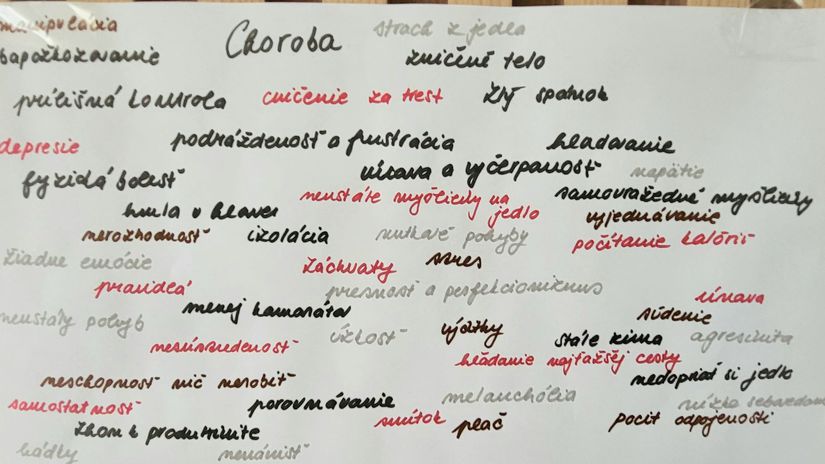 manipulácia Choroba strach z jedla
zničené telo
prílišná kontrola cvičenie za trest zlý spánok
depresie podráždenosť a frustrácia hladovanie
fyzická bolesť únava a vyčerpanosť napätie
neustále myšlienky na jedlo samovražedné myšlienky
hmla v hlave vyjednávanie
nerozhodnosť izolácia nutkavé pohyby počítanie kalórií
žiadne emócie záchvaty stres
pravidlá presnosť a perfekcionizmus únava
neustály pohyb menej kamarátov súdenie
úzkosť výčitky stále zima agresivita
nesústredenosť hľadanie najťažšej cesty
neschopnosť nič nerobiť nedopriať si jedlo
samostatnosť porovnávanie melanchólia nízke
zhon k produktivite smútok plač pocit odpojenosti
hádky nenávisť